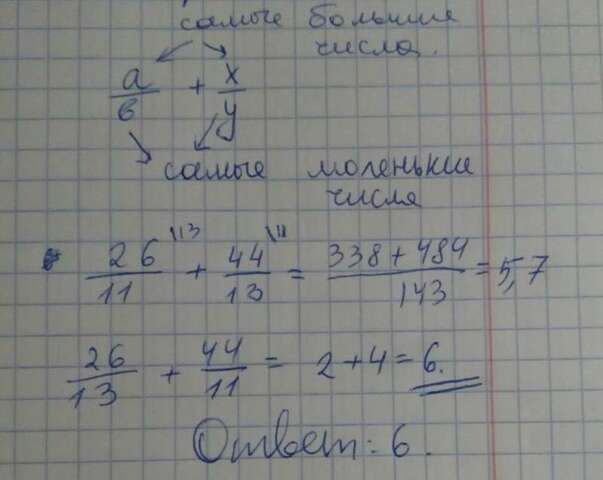 самые большие
числа.
a/в + x/y
самые моленькие
числа
26/11 \13 + 44/13 \11 = 338+484/143 = 5,7
26/13 + 44/11 = 2+4=6.
Ответ: 6.